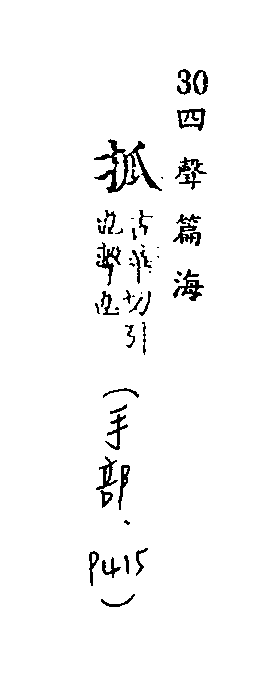 30四聲篇海
㧓
古切引
也擊也
(手部、P415)